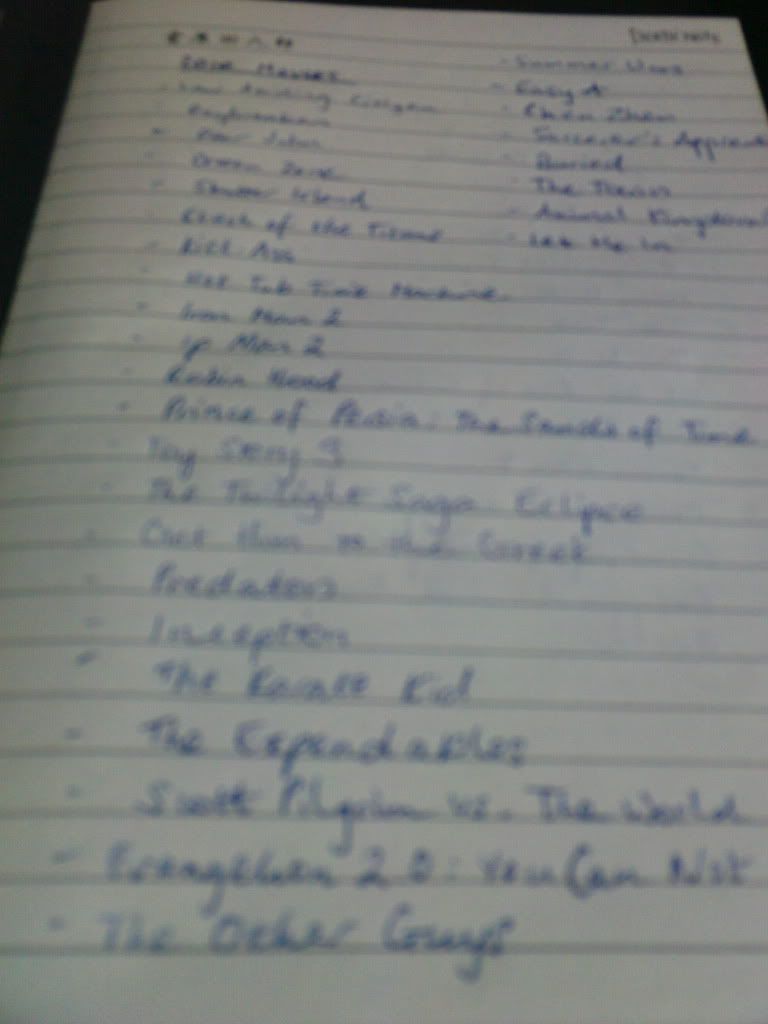 2010 Movies
- Law Abiding Citizen
- Daybreakers
- Green Zone
- Shutter Island
Clash of the Titans
- Kick Ass
- Hot Tub Time Machine
- Iron Man 2
- Ip Man 2
- Robin Hood
- Prince of Persia: The Sands of Time
- Toy Story 3
- The Twilight Saga Eclipse
- Get Him to the Greek
- Predators
- Inception
- The Karate Kid
- The Expendables
- Scott Pilgrim vs. The World
- Evangelion 2.0: You Can Not
- The Other Guys
- Summer Wars
- Easy A
- Chen Zhen
- Sorcerer's
- Buried
- The Town
- Animal Kingdom
- Let Me In